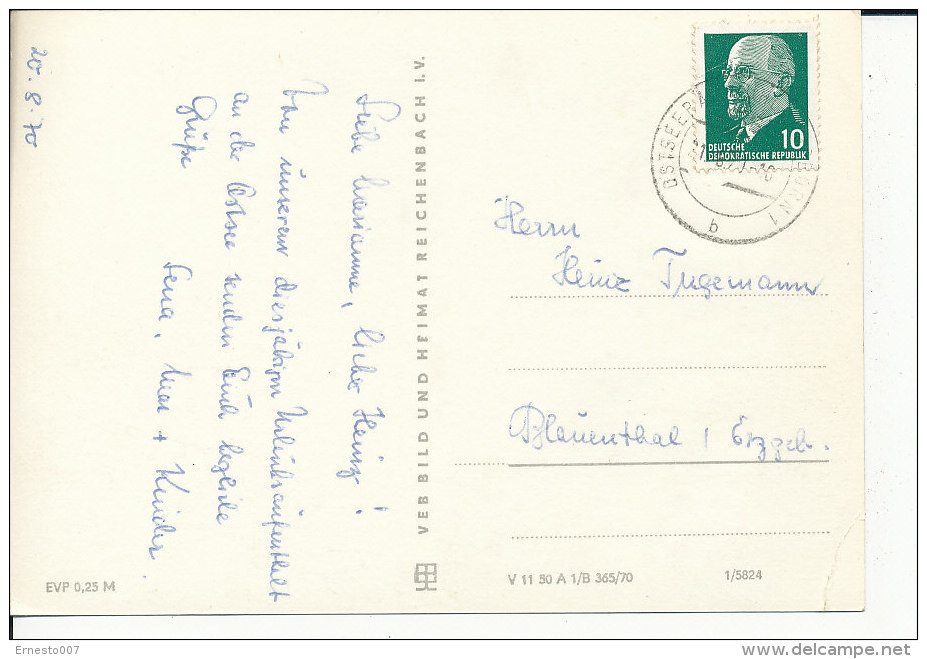 20.8.70
Liebe Marianne, lieber Heinz!
Von unserem diesjährigen Urlaubsaufenthalt
an der Ostsee senden Euch herzliche
Grüße
Lena, Max + Kinder.
VEB BILD UND HEIMAT REICHENBACH I.V.
DEUTSCHE
DEMOKRATISCHE REPUBLIK
10
OSTSEEBAD
b
Herrn
Heinz Tugemann
Blauenthal / Erzgeb.
EVP 0,25 M
V 11 50 A 1/B 365/70
1/5824
Ernesto007
delcampe.net